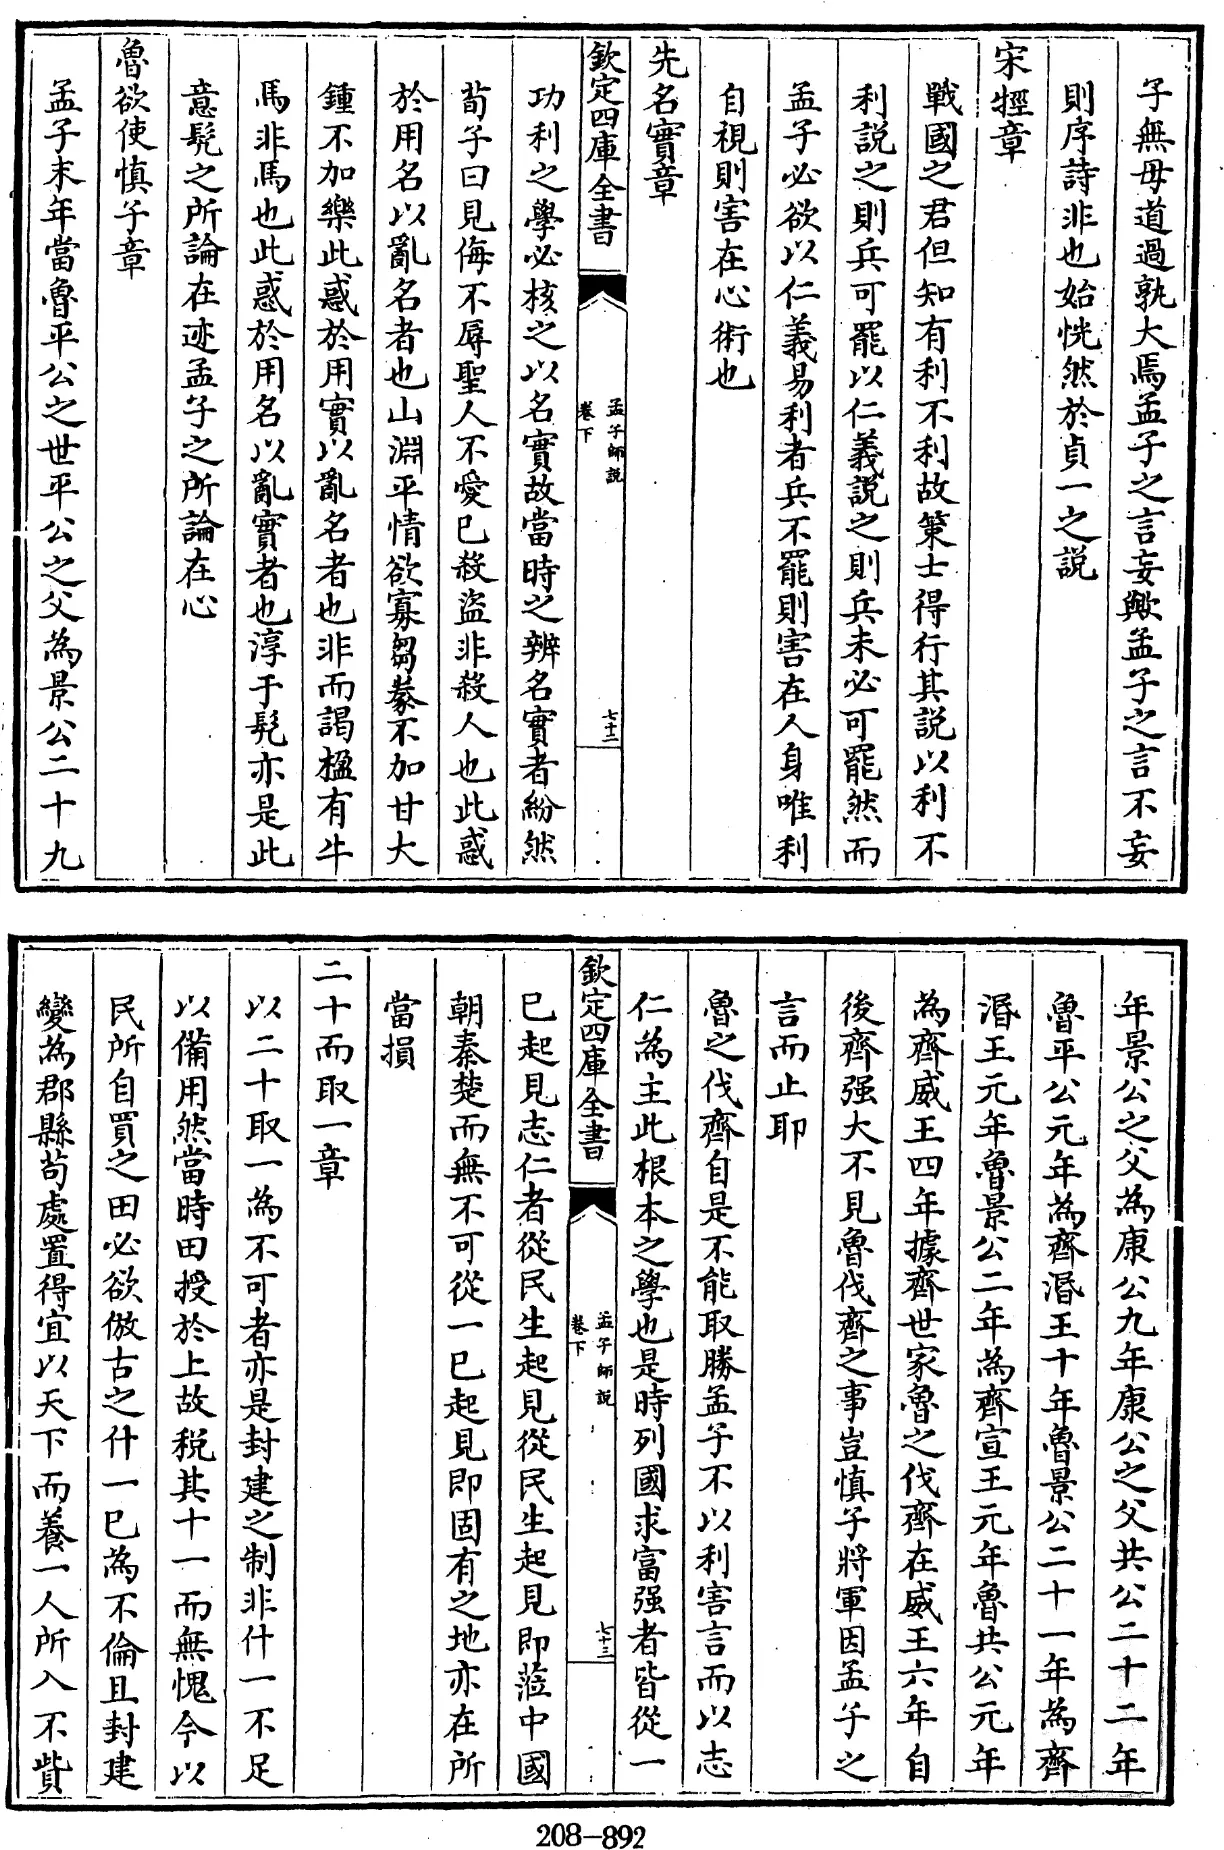 子無母道過孰大焉孟子之言妄歟孟子之言不妄
則序詩非也始恍然於貞一之説
宋牼章
戰國之君但知有利不利故策士得行其説以利不
利説之則兵可罷以仁義説之則兵未必可罷然而
孟子必欲以仁義易利者兵不罷則害在人身唯利
自視則害在心術也
先名實章
欽定四庫全書
孟子師說
卷下
七十二
功利之學必核之以名實故當時之辨名實者紛然
荀子曰見侮不辱聖人不愛已殺盜非殺人也此惑
於用名以亂名者也山淵平情欲寡芻豢不加甘大
鍾不加樂此惑於用實以亂名者也非而謁楹有牛
馬非馬也此惑於用名以亂實者也淳于髡亦是此
意髡之所論在迹孟子之所論在心
魯欲使慎子章
孟子末年當魯平公之世平公之父為景公二十九
年景公之父為康公九年康公之父共公二十二年
魯平公元年為齊湣王十年魯景公二十一年為齊
湣王元年魯景公二年為齊宣王元年魯共公元年
為齊威王四年據齊世家魯之伐齊在威王六年自
後齊强大不見魯伐齊之事豈慎子將軍因孟子之
言而止耶
魯之伐齊自是不能取勝孟子不以利害言而以志
仁為主此根本之學也是時列國求富强者皆從一
欽定四庫全書
孟子師說
卷下
七十三
已起見志仁者從民生起見從民生起見即蒞中國
朝秦楚而無不可從一已起見即固有之地亦在所
當損
二十而取一章
以二十取一為不可者亦是封建之制非什一不足
以備用然當時田授於上故稅其十一而無愧今以
民所自買之田必欲倣古之什一已為不倫且封建
變為郡縣苟處置得宜以天下而養一人所入不貲
208-892